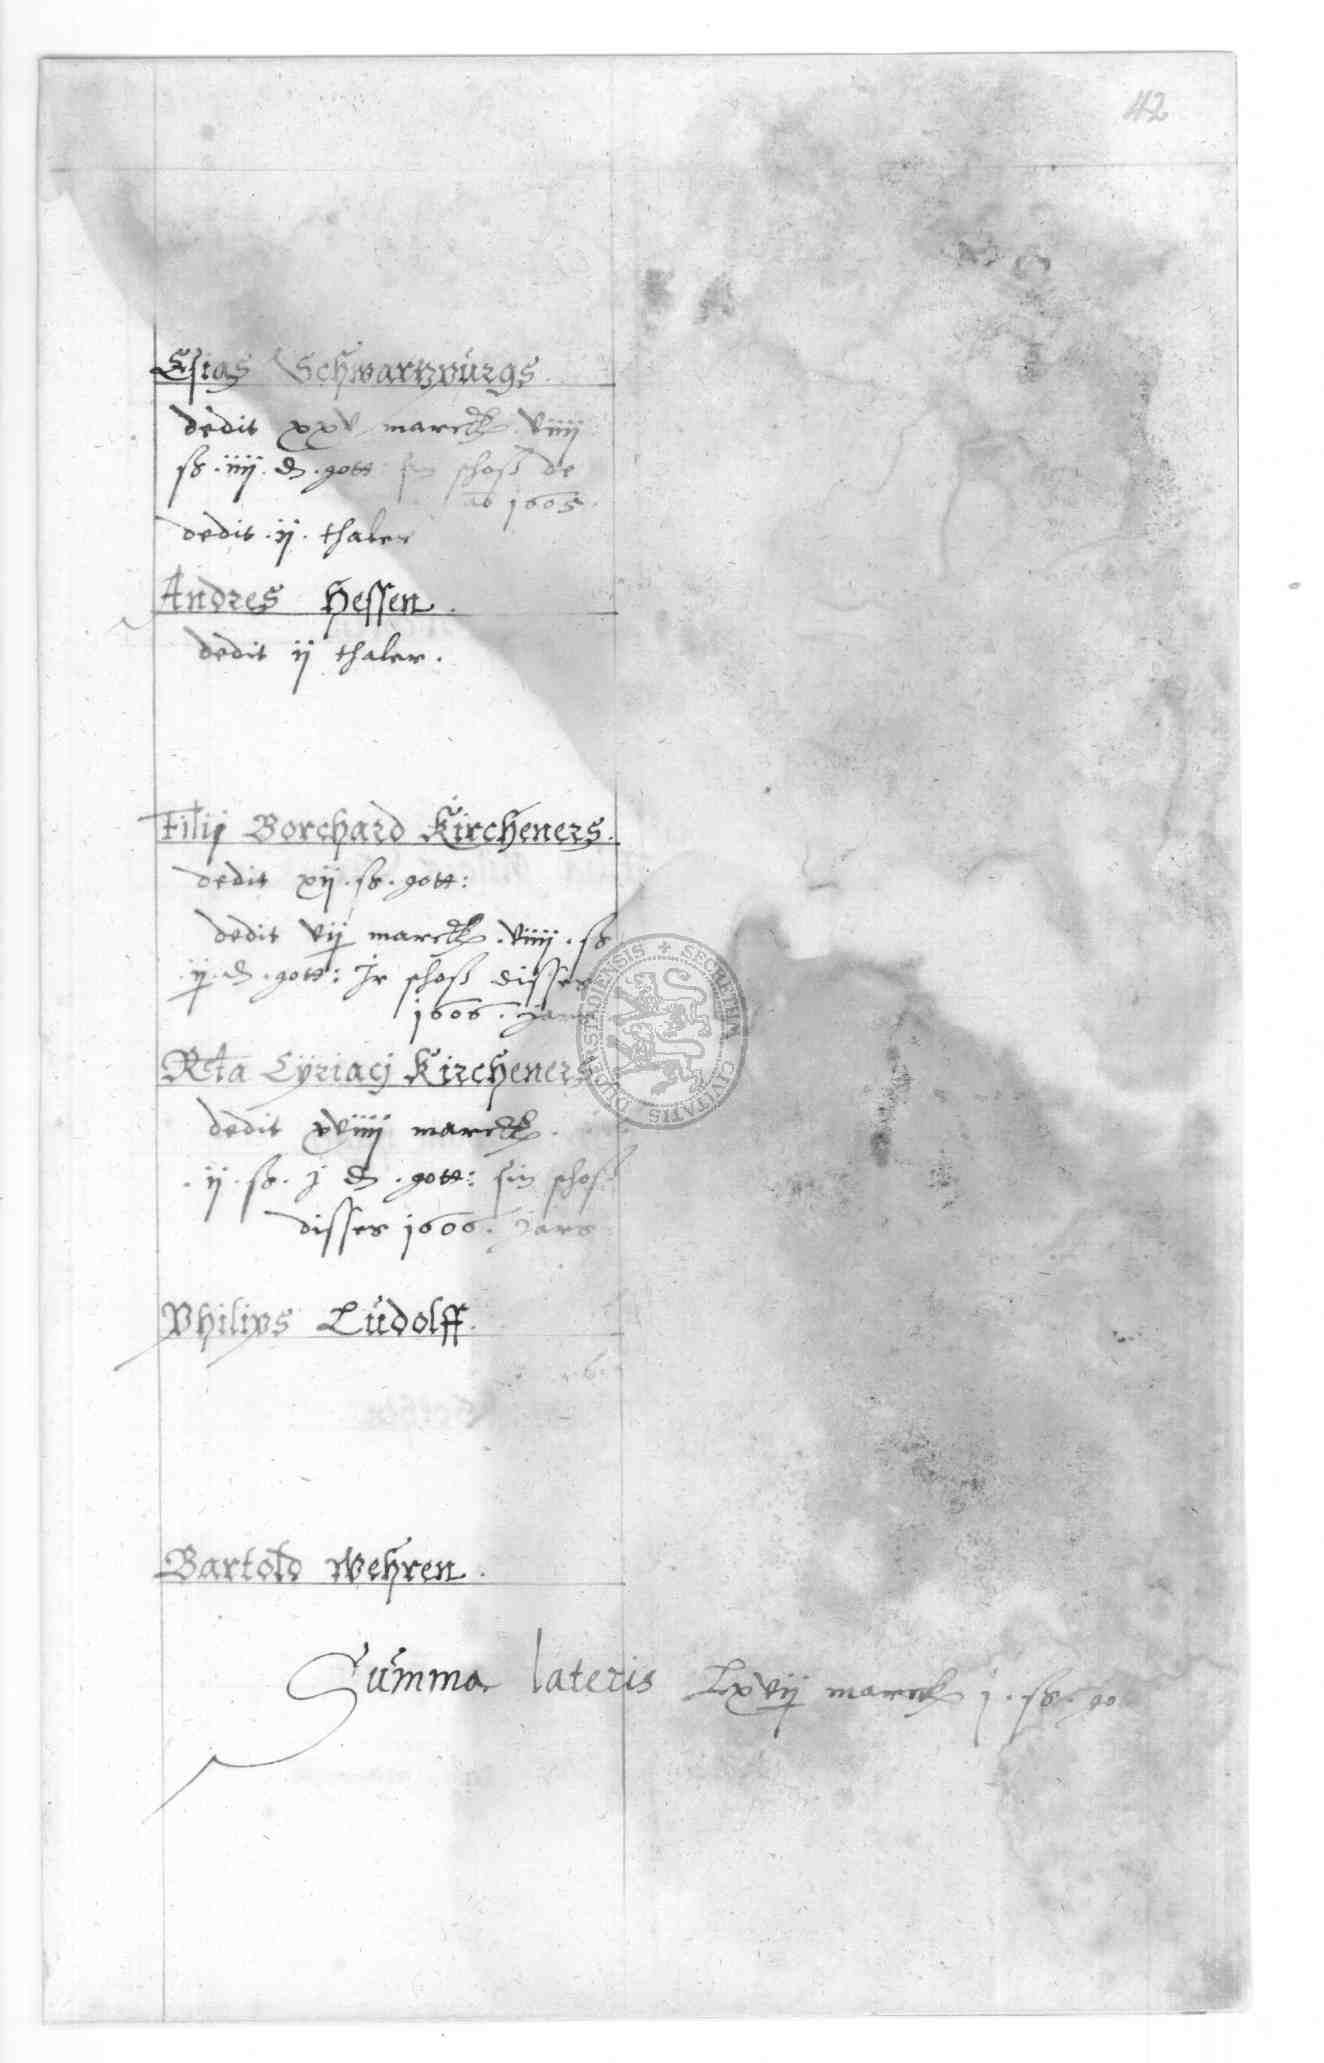 42
Esias Schwartzburgs.
dedit xxv marck. viiij
ß. iiij. d. gott: sin schoß de
ao 1605.
dedit. ij. thaler
Andres Hessen.
dedit ij thaler.
Filij Borchard Kircheners.
dedit xij. ß. gott:
dedit vij marck. viiij. ß
ij. d. gott: Ir schoß disses
1606. jars
Rta Cyriacj Kircheners
dedit xviiij marck.
. ij. ß. j d. gott: sin schoß
disses 1606. jars
Philips Ludolff.
Bartold Wehren.
Summa lateris Lxvij marck j. ß. go
SECRETUM CIVITATIS DUDERSTADIENSIS